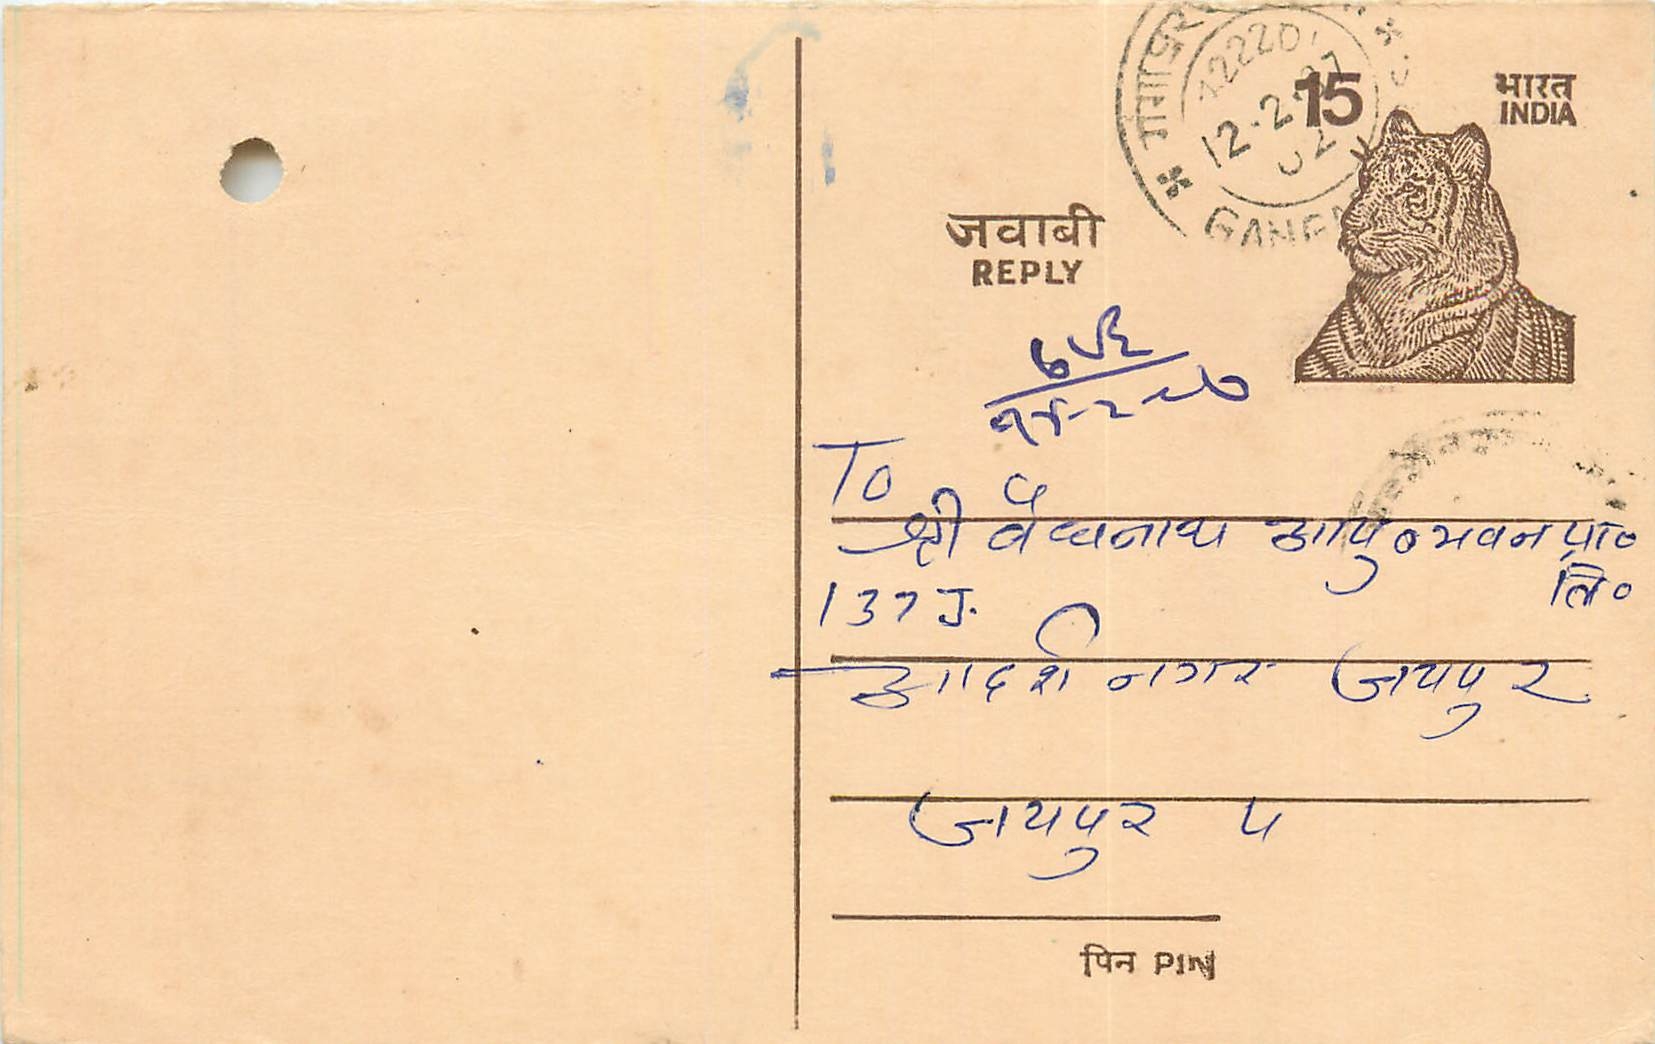 15
भारत
INDIA
जवाबी
REPLY
12-2-87
१४-२-८७
To
श्री वैद्यनाथ आयु० भवन प्रा०
लि०
137 J.
आदर्श नगर जयपुर
जयपुर ५
पिन PIN